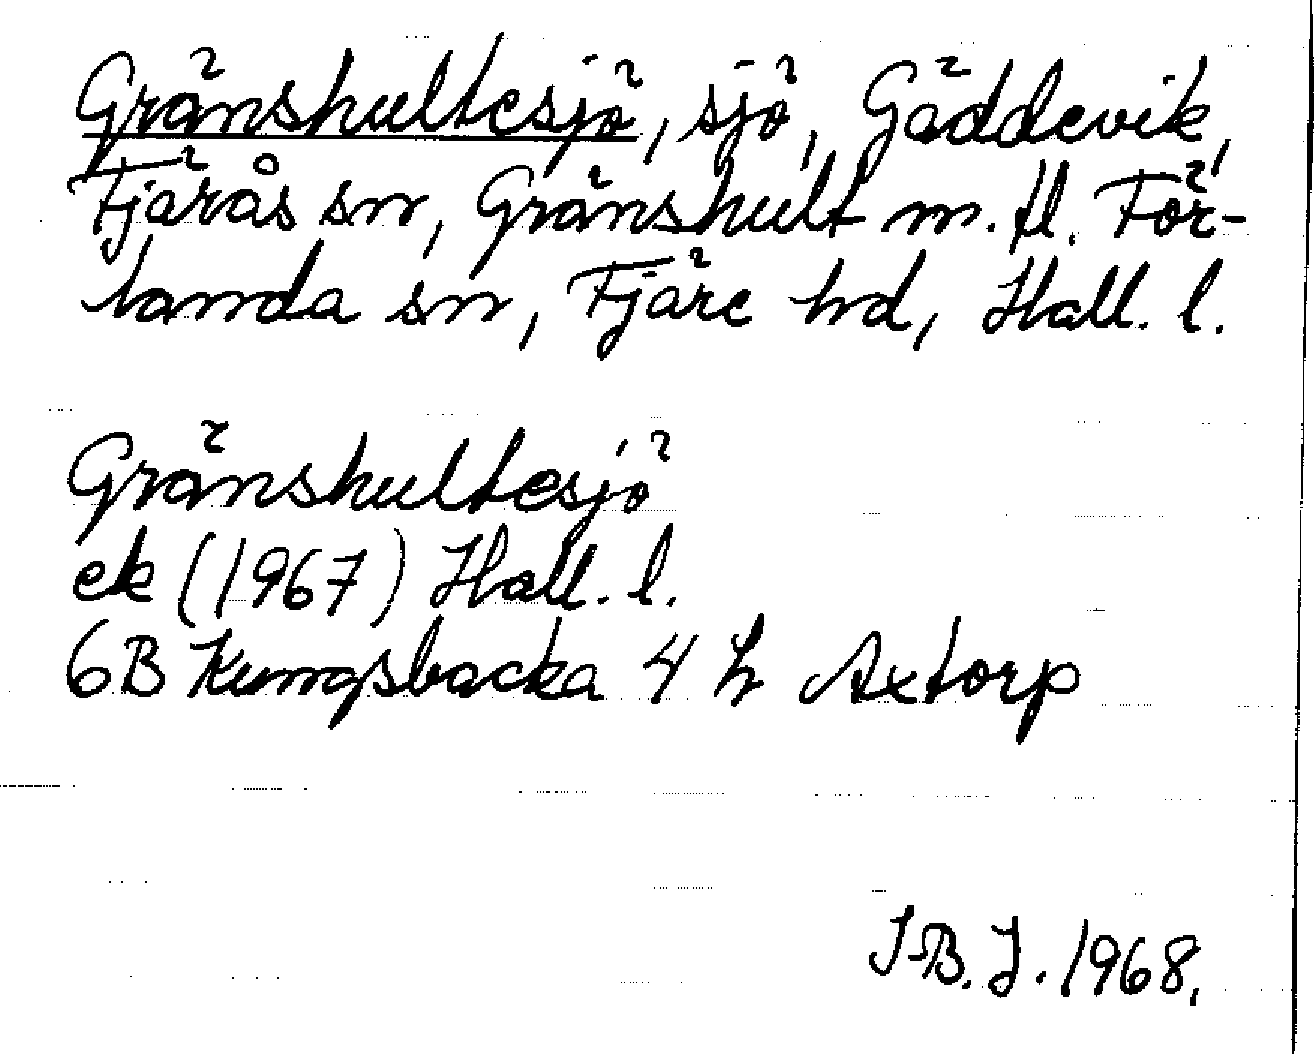 Gränshultesjö, sjö, Gäddevik,
Fjärås sn, Gränshult m. fl. För-
landa sn, Fjäre hd, Hall. l.
Gränshultesjö
ek (1967) Hall. l.
6B Kungsbacka 4 h Axtorp
J-B. J. 1968.